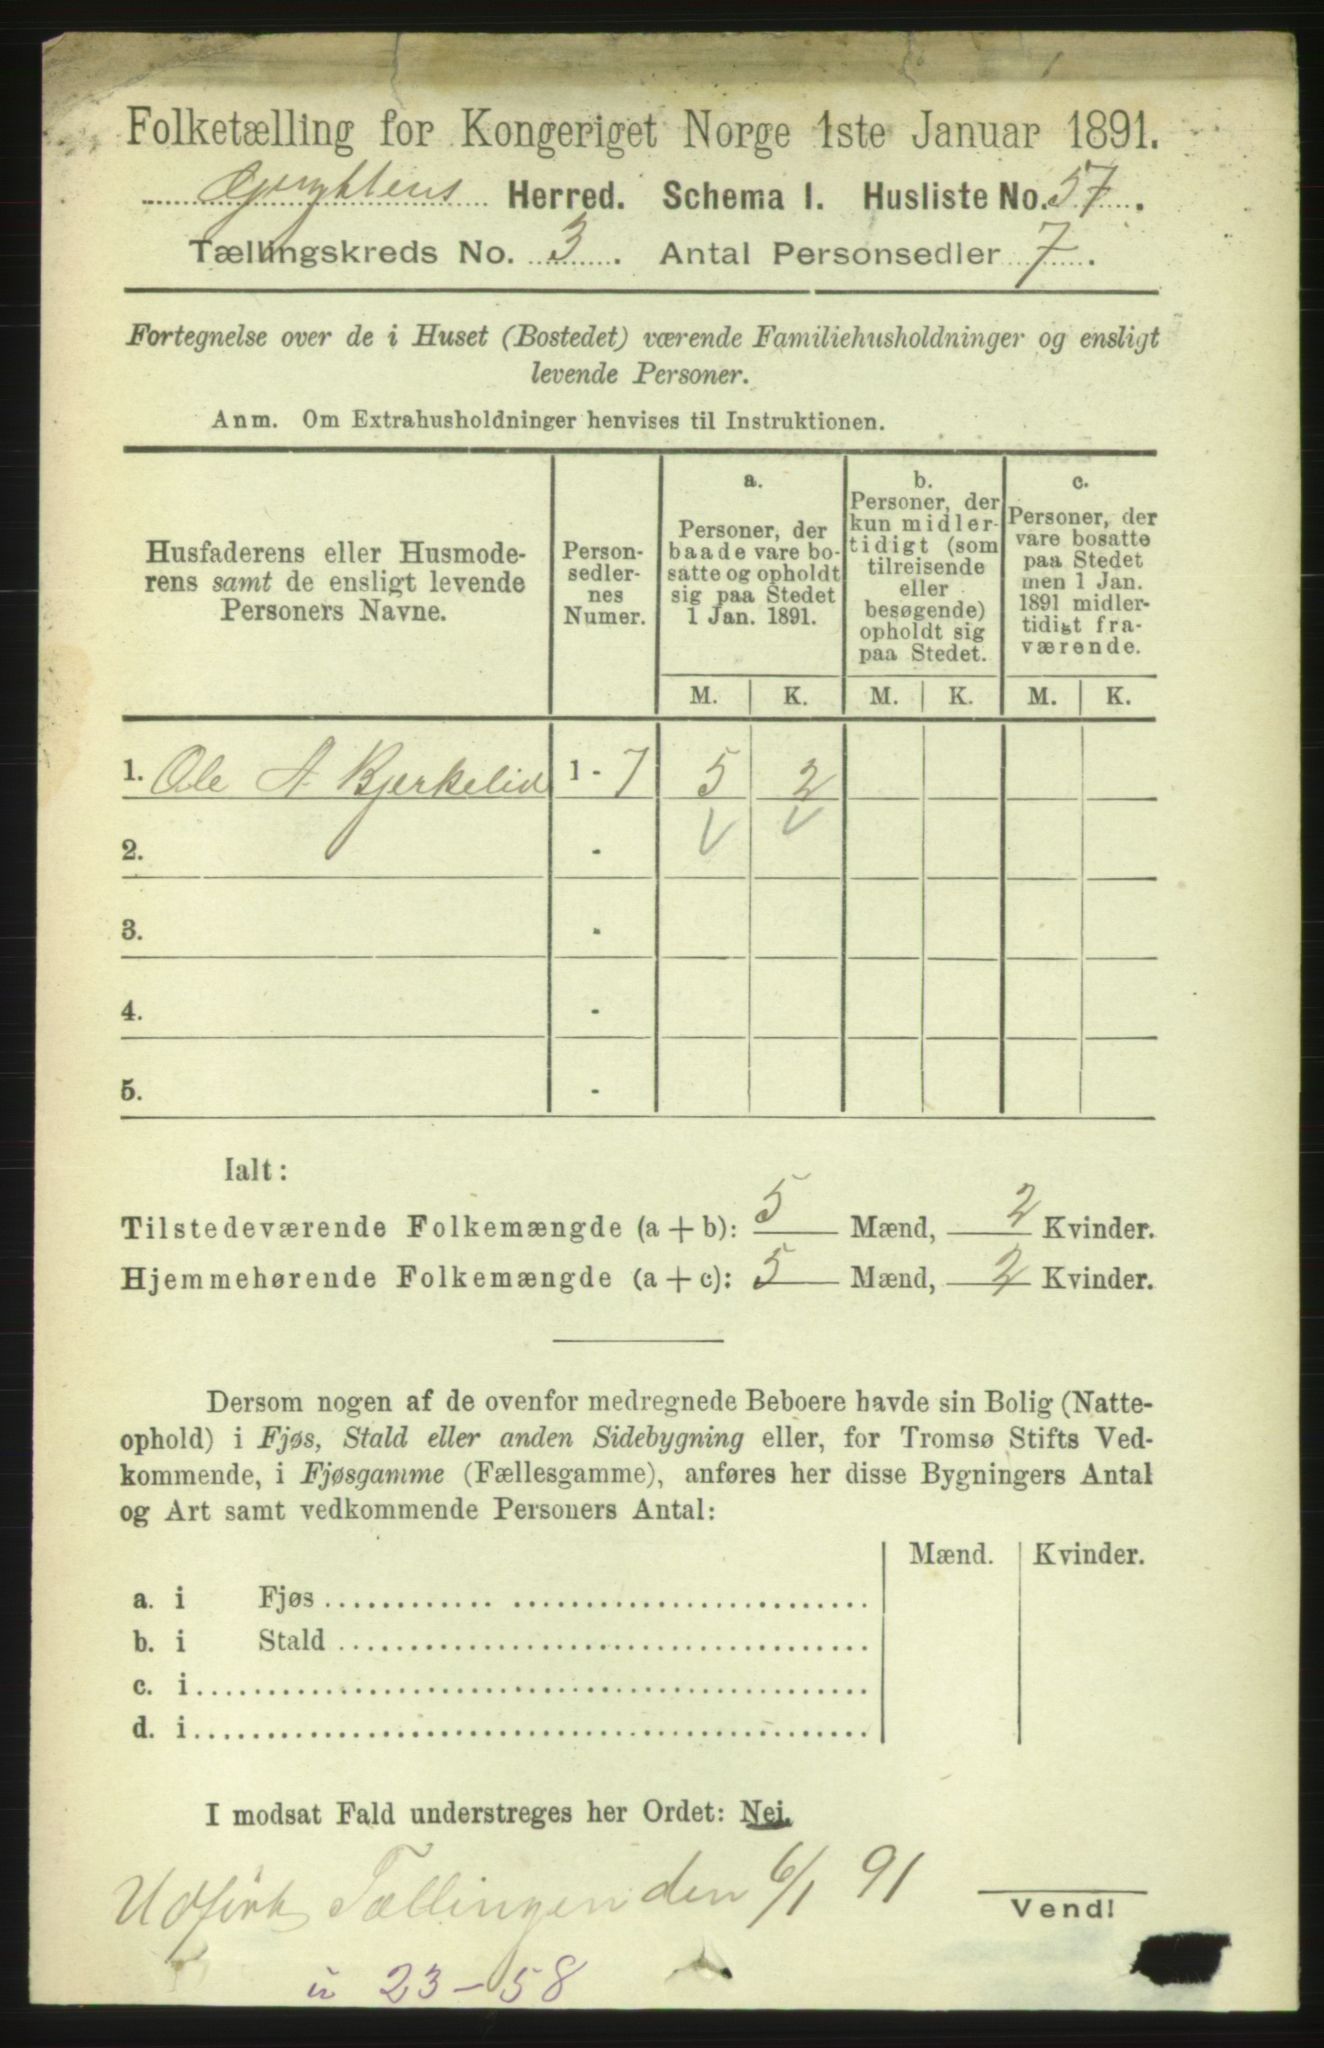 Folketælling for Kongeriget Norge 1ste Januar 1891.
Herred. Schema I. Husliste No. 57.
Tællingskreds No. 3. Antal Personsedler 7.
Fortegnelse over de i Huset (Bostedet) værende Familiehusholdninger og ensligt
levende Personer.
Anm. Om Extrahusholdninger henvises til Instruktionen.
Husfaderens eller Husmode-
rens samt de ensligt levende
Personers Navne.
Person-
sedler-
nes
Numer.
a.
Personer, der
baade vare bo-
satte og opholdt
sig paa Stedet
1 Jan. 1891.
b.
Personer, der
kun midler-
tidigt (som
tilreisende
eller
besøgende)
opholdt sig
paa Stedet.
c.
Personer, der
vare bosatte
paa Stedet
men 1 Jan.
1891 midler-
tidigt fra-
værende.
M. K. M. K. M. K.
1. Ole A Bjerkelid 1 - 7 5 2
2. -
3. -
4. -
5. -
Ialt:
Tilstedeværende Folkemængde (a + b): 5 Mænd, 2 Kvinder.
Hjemmehørende Folkemængde (a + c): 5 Mænd, 2 Kvinder.
Dersom nogen af de ovenfor medregnede Beboere havde sin Bolig (Natte-
ophold) i Fjøs, Stald eller anden Sidebygning eller, for Tromsø Stifts Ved-
kommende, i Fjøsgamme (Fællesgamme), anføres her disse Bygningers Antal
og Art samt vedkommende Personers Antal:
Mænd. Kvinder.
a. i Fjøs
b. i Stald
c. i
d. i
I modsat Fald understreges her Ordet: Nei.
Tællingen den 6/1 91
Vend!
23-58